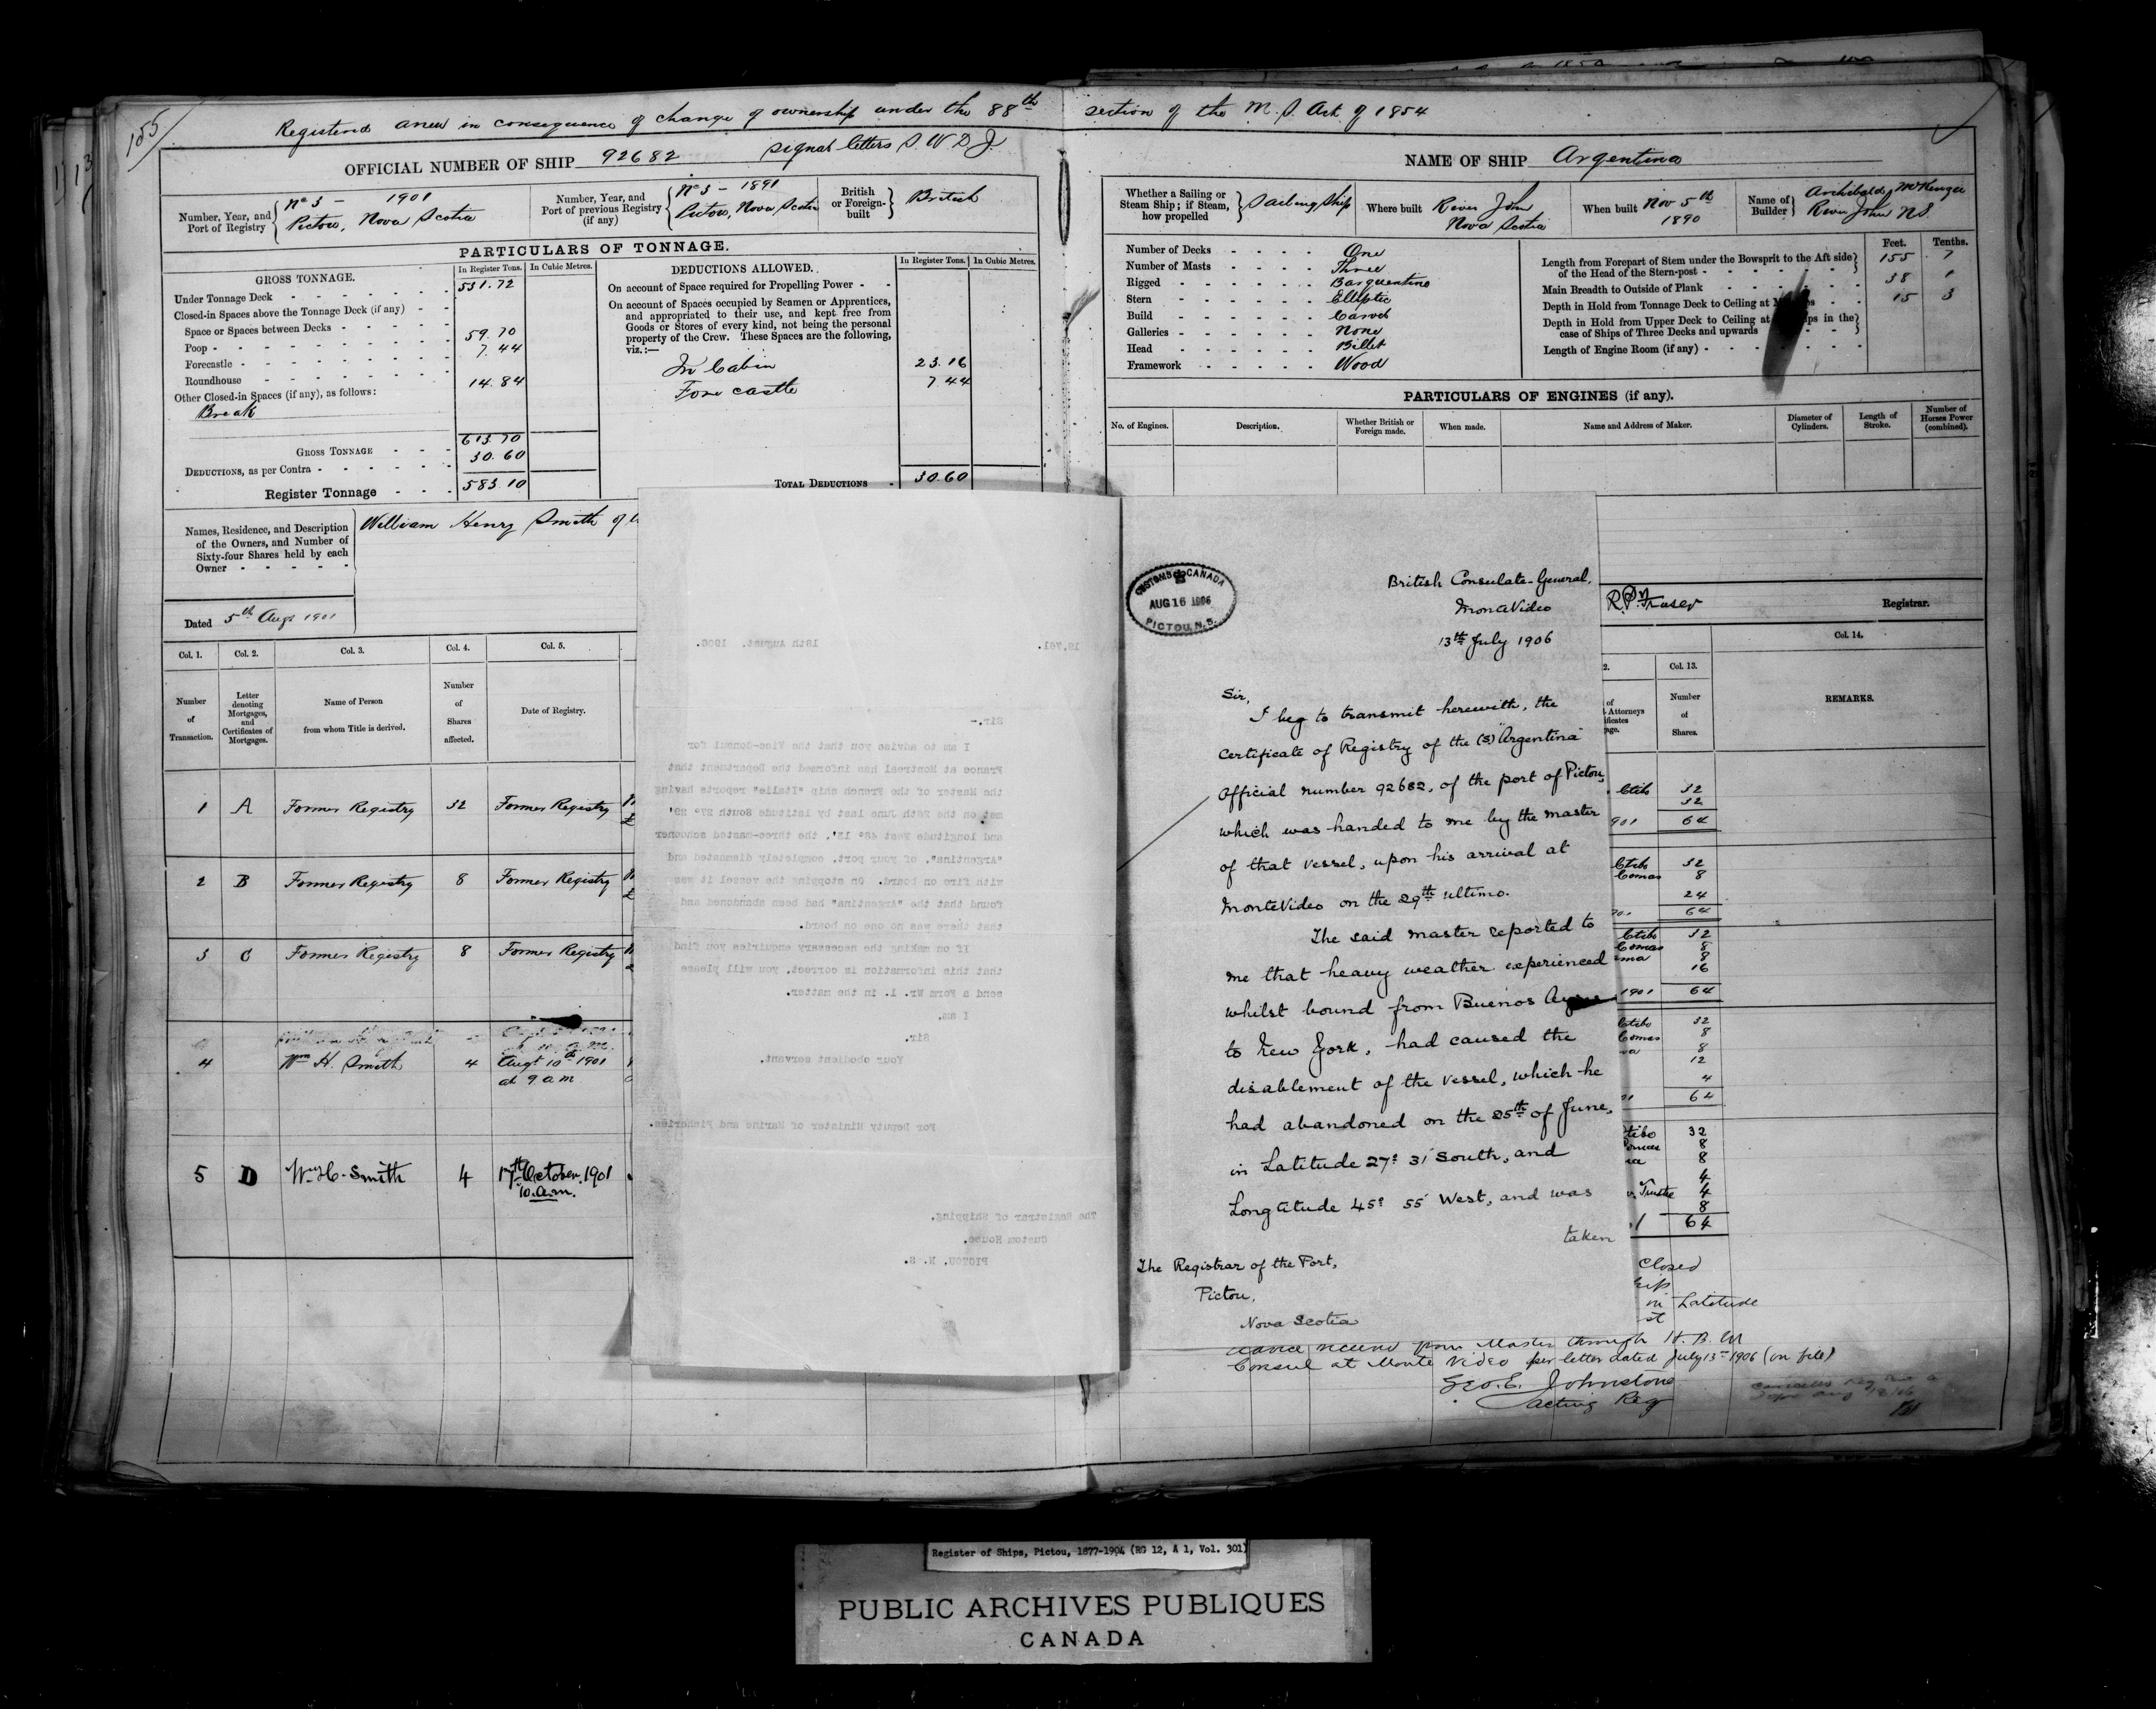 155
Registered anew in consequence of change of ownership under the 88th section of the M. S. Act of 1854
OFFICIAL NUMBER OF SHIP 92682 Signal letters S. W. D. J.
Number, Year, and Port of Registry
No 3 - 1901
Pictou, Nova Scotia
Number, Year, and Port of previous Registry (if any)
No 3 - 1891
Pictou, Nova Scotia
British or Foreign-built
British
PARTICULARS OF TONNAGE.
GROSS TONNAGE.
In Register Tons.
In Cubic Metres.
Under Tonnage Deck 531.72
Closed-in Spaces above the Tonnage Deck (if any)
Space or Spaces between Decks
Poop 59.70
Forecastle 7.44
Roundhouse
Other Closed-in Spaces (if any), as follows: 14.84
Break
GROSS TONNAGE 613.70
DEDUCTIONS, as per Contra 30.60
Register Tonnage 583.10
DEDUCTIONS ALLOWED.
In Register Tons.
In Cubic Metres.
On account of Space required for Propelling Power
On account of Spaces occupied by Seamen or Apprentices,
and appropriated to their use, and kept free from
Goods or Stores of every kind, not being the personal
property of the Crew. These Spaces are the following,
viz.:—
In Cabin 23.16
Fore castle 7.44
TOTAL DEDUCTIONS 30.60
Names, Residence, and Description
of the Owners, and Number of
Sixty-four Shares held by each
Owner
William Henry Smith of
Dated 5th Augt 1901
Col. 1. Col. 2. Col. 3. Col. 4. Col. 5.
Number of Transaction.
Letter denoting Mortgages, and Certificates of Mortgages.
Name of Person from whom Title is derived.
Number of Shares affected.
Date of Registry.
1 A Former Registry 32 Former Registry
2 B Former Registry 8 Former Registry
3 C Former Registry 8 Former Registry
4 Wm H. Smith 4 Augt 10th 1901
at 9 a m
5 D Wm H. Smith 4 17th October. 1901
10. a.m.
19,761.
18th August. 1906.
Sir,-
I am to advise you that the Vice-Consul for
France at Montreal has informed the Department that
the Master of the French ship "Italie" reports having
met on the 26th June last by latitude South 27° 29'
and longitude West 48° 12', the three-masted schooner
"Argentina", of your port, completely dismasted and
with fire on board. On stopping the vessel it was
found that the "Argentina" had been abandoned and
that there was no one on board.
If on making the necessary enquiries you find
that this information is correct, you will please
send a Form Wr. 1. in the matter.
I am,
Sir.
Your obedient servant.
For Deputy Minister of Marine and Fisheries.
The Registrar of Shipping.
Custom House.
PICTOU. N. S.
NAME OF SHIP Argentina
Whether a Sailing or Steam Ship; if Steam, how propelled
Sailing Ship
Where built River John
Nova Scotia
When built Nov 5th
1890
Name of Builder
Archibald McKenzie
River John N.S.
Number of Decks One
Number of Masts Three
Rigged Barquentine
Stern Elliptic
Build Carvel
Galleries None
Head Billet
Framework Wood
Feet. Tenths.
Length from Forepart of Stem under the Bowsprit to the Aft side
of the Head of the Stern-post 155 7
Main Breadth to Outside of Plank 38 1
Depth in Hold from Tonnage Deck to Ceiling at 15 3
Depth in Hold from Upper Deck to Ceiling at in the
case of Ships of Three Decks and upwards
Length of Engine Room (if any)
PARTICULARS OF ENGINES (if any).
No. of Engines.
Description.
Whether British or Foreign made.
When made.
Name and Address of Maker.
Diameter of Cylinders.
Length of Stroke.
Number of Horses Power (combined).
CUSTOMS CANADA
AUG 16 1906
PICTOU, N.S.
British Consulate-General,
MonteVideo
13th July 1906
Sir,
I beg to transmit herewith, the
Certificate of Registry of the (s) "Argentina"
Official number 92682, of the port of Pictou,
which was handed to me by the master
of that vessel, upon his arrival at
MonteVideo on the 29th ultimo.
The said master reported to
me that heavy weather experienced
whilst bound from Buenos Ayres
to New York, had caused the
disablement of the vessel, which he
had abandoned on the 25th of June,
in Latitude 27° 31' South, and
Longitude 45° 55' West, and was
taken
The Registrar of the Port,
Pictou,
Nova Scotia
Fraser Registrar.
Col. 13. Col. 14.
Number of Shares.
REMARKS.
32
32
64
32
8
24
64
32
8
8
16
64
32
8
8
12
4
64
32
8
8
4
4
8
64
Closed
in Latitude
advice received from Master through H. B. M
Consul at Monte Video per letter dated July 13th 1906 (on file)
Geo. E. Johnstone
Acting Reg
Register of Ships, Pictou, 1877-1904 (RG 12, A 1, Vol. 301)
PUBLIC ARCHIVES PUBLIQUES
CANADA